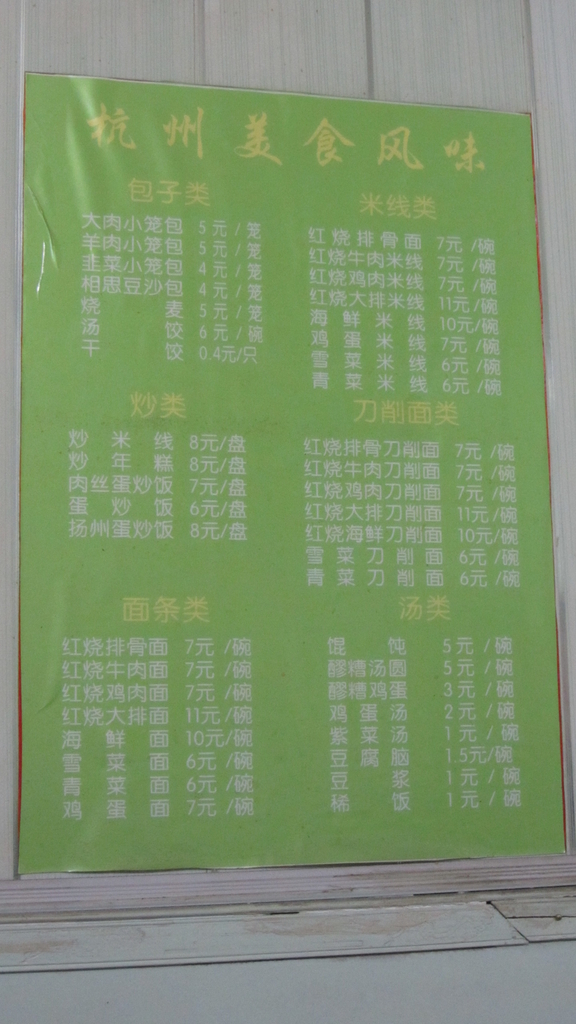 杭州美食风味
包子类
大肉小笼包 5元/笼
羊肉小笼包 5元/笼
韭菜小笼包 4元/笼
相思豆沙包 4元/笼
烧麦 5元/笼
汤饺 6元/碗
干饺 0.4元/只
炒类
炒米线 8元/盘
炒年糕 8元/盘
肉丝蛋炒饭 7元/盘
蛋炒饭 6元/盘
扬州蛋炒饭 8元/盘
面条类
红烧排骨面 7元/碗
红烧牛肉面 7元/碗
红烧鸡肉面 7元/碗
红烧大排面 11元/碗
海鲜面 10元/碗
雪菜面 6元/碗
青菜面 6元/碗
鸡蛋面 7元/碗
米线类
红烧排骨面 7元/碗
红烧牛肉米线 7元/碗
红烧鸡肉米线 7元/碗
红烧大排米线 11元/碗
海鲜米线 10元/碗
鸡蛋米线 7元/碗
雪菜米线 6元/碗
青菜米线 6元/碗
刀削面类
红烧排骨刀削面 7元/碗
红烧牛肉刀削面 7元/碗
红烧鸡肉刀削面 7元/碗
红烧大排刀削面 11元/碗
红烧海鲜刀削面 10元/碗
雪菜刀削面 6元/碗
青菜刀削面 6元/碗
汤类
馄饨 5元/碗
醪糟汤圆 5元/碗
醪糟鸡蛋 3元/碗
鸡蛋汤 2元/碗
紫菜汤 1元/碗
豆腐脑 1.5元/碗
豆浆 1元/碗
稀饭 1元/碗